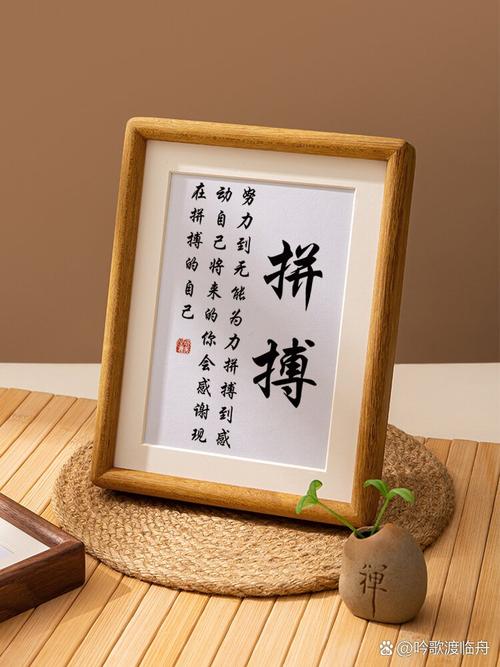 拼搏
努力到无能为力拼搏到感
动自己将来的你会感谢现
在拼搏的自己
禅
@吟歌渡临舟